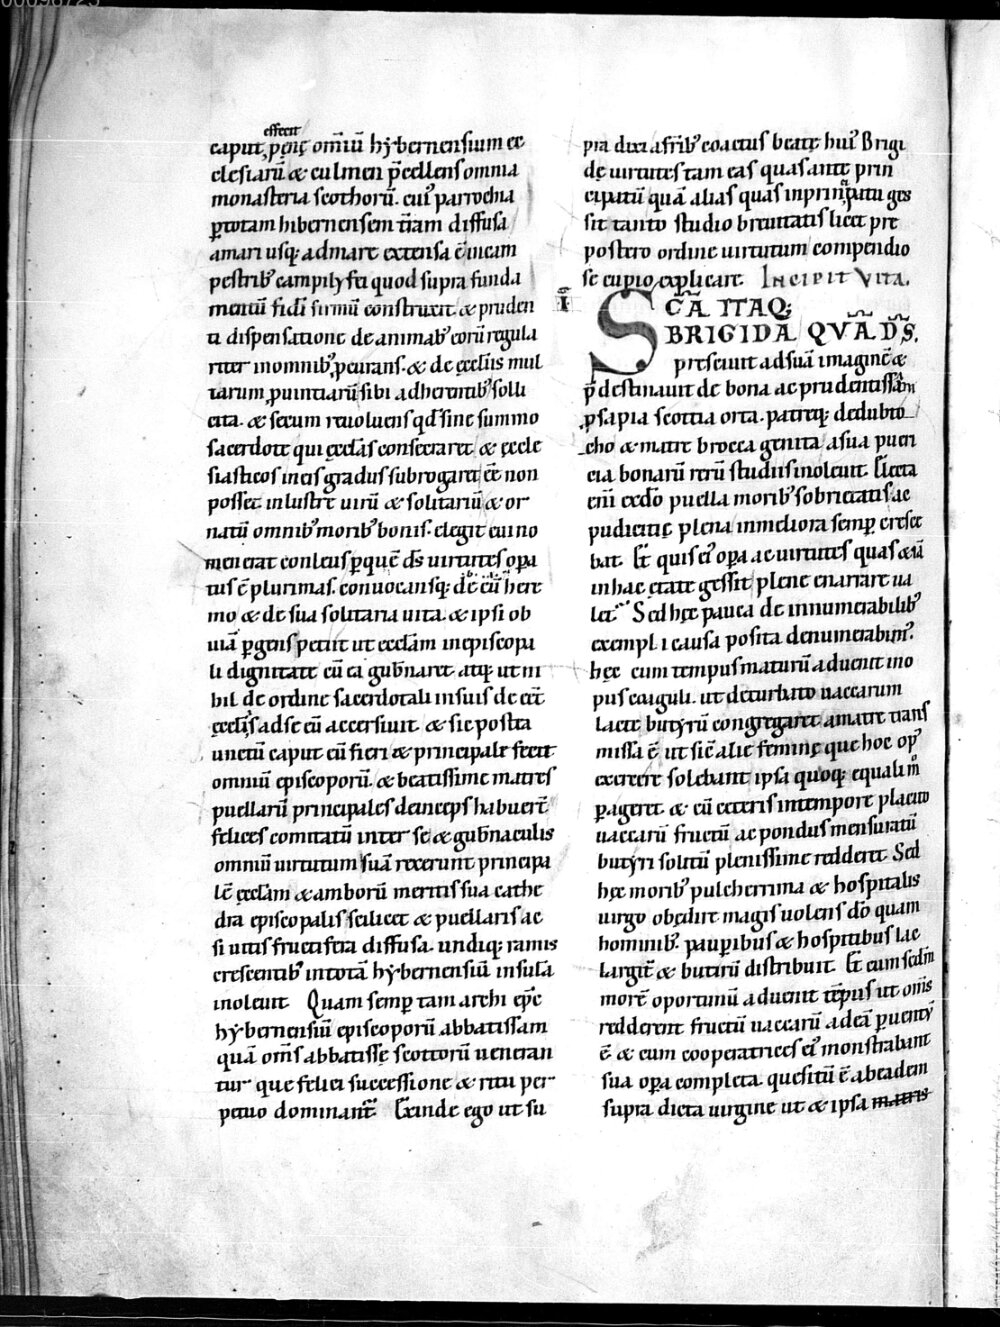 00098723
effecit
caput, pęnę omīū hẏbernensium ec
clesiarū & culmen p̄cellens omnia
monasteria scothorū. cui᾽ parrochia
ꝑ totam hibernensem t̄ram diffusa
a mari usq; ad mare extensa ē in cam
pestrib᾽ campi lyfei quod supra funda
mentū fidi firmū construxit & pruden
ti dispensatione de animab᾽ eorū regula
riter in omnib᾽ ꝓcurans. & de ęcclesiis mul
tarum ꝓuintiarū sibi adherentib᾽ solli
cita. & secum reuoluens qđ sine summo
sacerdote qui ęcclas consecraret & eccle
siasticos in eis gradus subrogaret eē non
posset inlustrē uirū & solitariū & or
natū omnib᾽ morib᾽ bonis. elegit cui no
men erat conleus ꝑ quē ds̄ uirtutes opa
tus ē plurimas. conuocansq; de eū here
mo & de sua solitaria uita. & ipsi ob
uiā ꝑgens petiit ut ecclam in episcopa
li dignitate cū ea gub̄naret. atq; ut ni
hil de ordine sacerdotali in suis de eēt
ęccl̄s ad se eū accersiuit. & sic posta
unctū caput cū fieri & principale fecit
omnium episcoporū. & beatissime matres
puellarū principales deinceps habuert̄
felices comitatū inter se & gub̄naculis
omniū uirtutum suā rexerunt principa
lē ęcclam & amborū meritis sua cathe
dra episcopalis scilicet & puellaris ac
si uitis fructifera diffusa. undiq; ramis
crescentib᾽ in totā hẏbernensiū insulā
inoleuit Quam semꝑ tam archi epc̄
hẏbernensiū episcoporū abbatissam
quā oms̄ abbatissę scottorū ueneran
tur que felici successione & ritu per
petuo dominant̄ Exinde ego ut su
pra dixi a fr̄ib᾽ coactus beatę hui᾽ Brigi
dę uirtutes tam eas quas ante prin
cipatū quā alias quas in principatu ges
sit tanto studio breuitatis licet pre
postero ordine uirtutum compendio
se cupio explicare. Incipit Vita.
I
SC̄Ā ITAQ;
BRIGIDA QVĀ D̄S.
presciuit ad suā imaginē &
p̄destinauit de bona ac prudentissām
ꝓsapia scottia orta. patreq; dedubto
cho & matre brocca genita a sua pueri
cia bonarū rerū studiis inoleuit. Electa
eni ex do puella morib᾽ sobrietatis ac
pudicitię plena in meliora semꝑ cresce
bat. Et quis ei᾽ opa ac uirtutes quas & iā
in hac ętate gessit plene enarrare ua
let. Sed hęc pauca de innumerabilib᾽
exempli causa posita denumerabim᾽.
hęc cum tempus maturū aduenit in o
pus coaguli. ut deturbato uaccarum
lacte butyrū congregaret a matre trans
missa ē ut sic alie feminę que hoc op᾽
exercere solebant ipsa quoq; equali m̊
ꝑageret. & cū ceteris in tempore placito
uaccarū fructū ac pondus mensuratū
butyri solitū plenissime redderet Sed
hęc morib᾽ pulcherrima & hospitalis
uirgo obędire magis uolens dō quam
hominib᾽. pauꝑibus & hospitibus lac
largit̄ & butirū distribuit. Et cum scdm̄
morē oportunū aduenit tēpus ut om̄s
redderent fructū uaccarū ad eā ꝑuentū
ē. & cum cooperatrices ei᾽ monstrabant
sua opa completa. quesitū ē ab eadem
supra dicta uirgine ut & ipsa matris